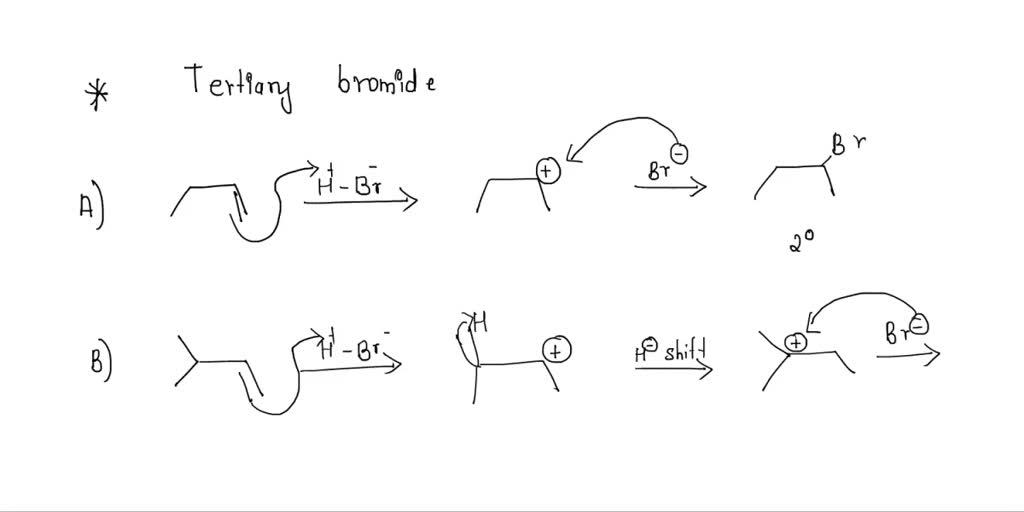 * Tertiary bromide
A) H⁺-Br⁻ ⊕ Br⊖ Br
2°
B) H⁺-Br⁻ H ⊕ H⊖ shift ⊕ Br⊖